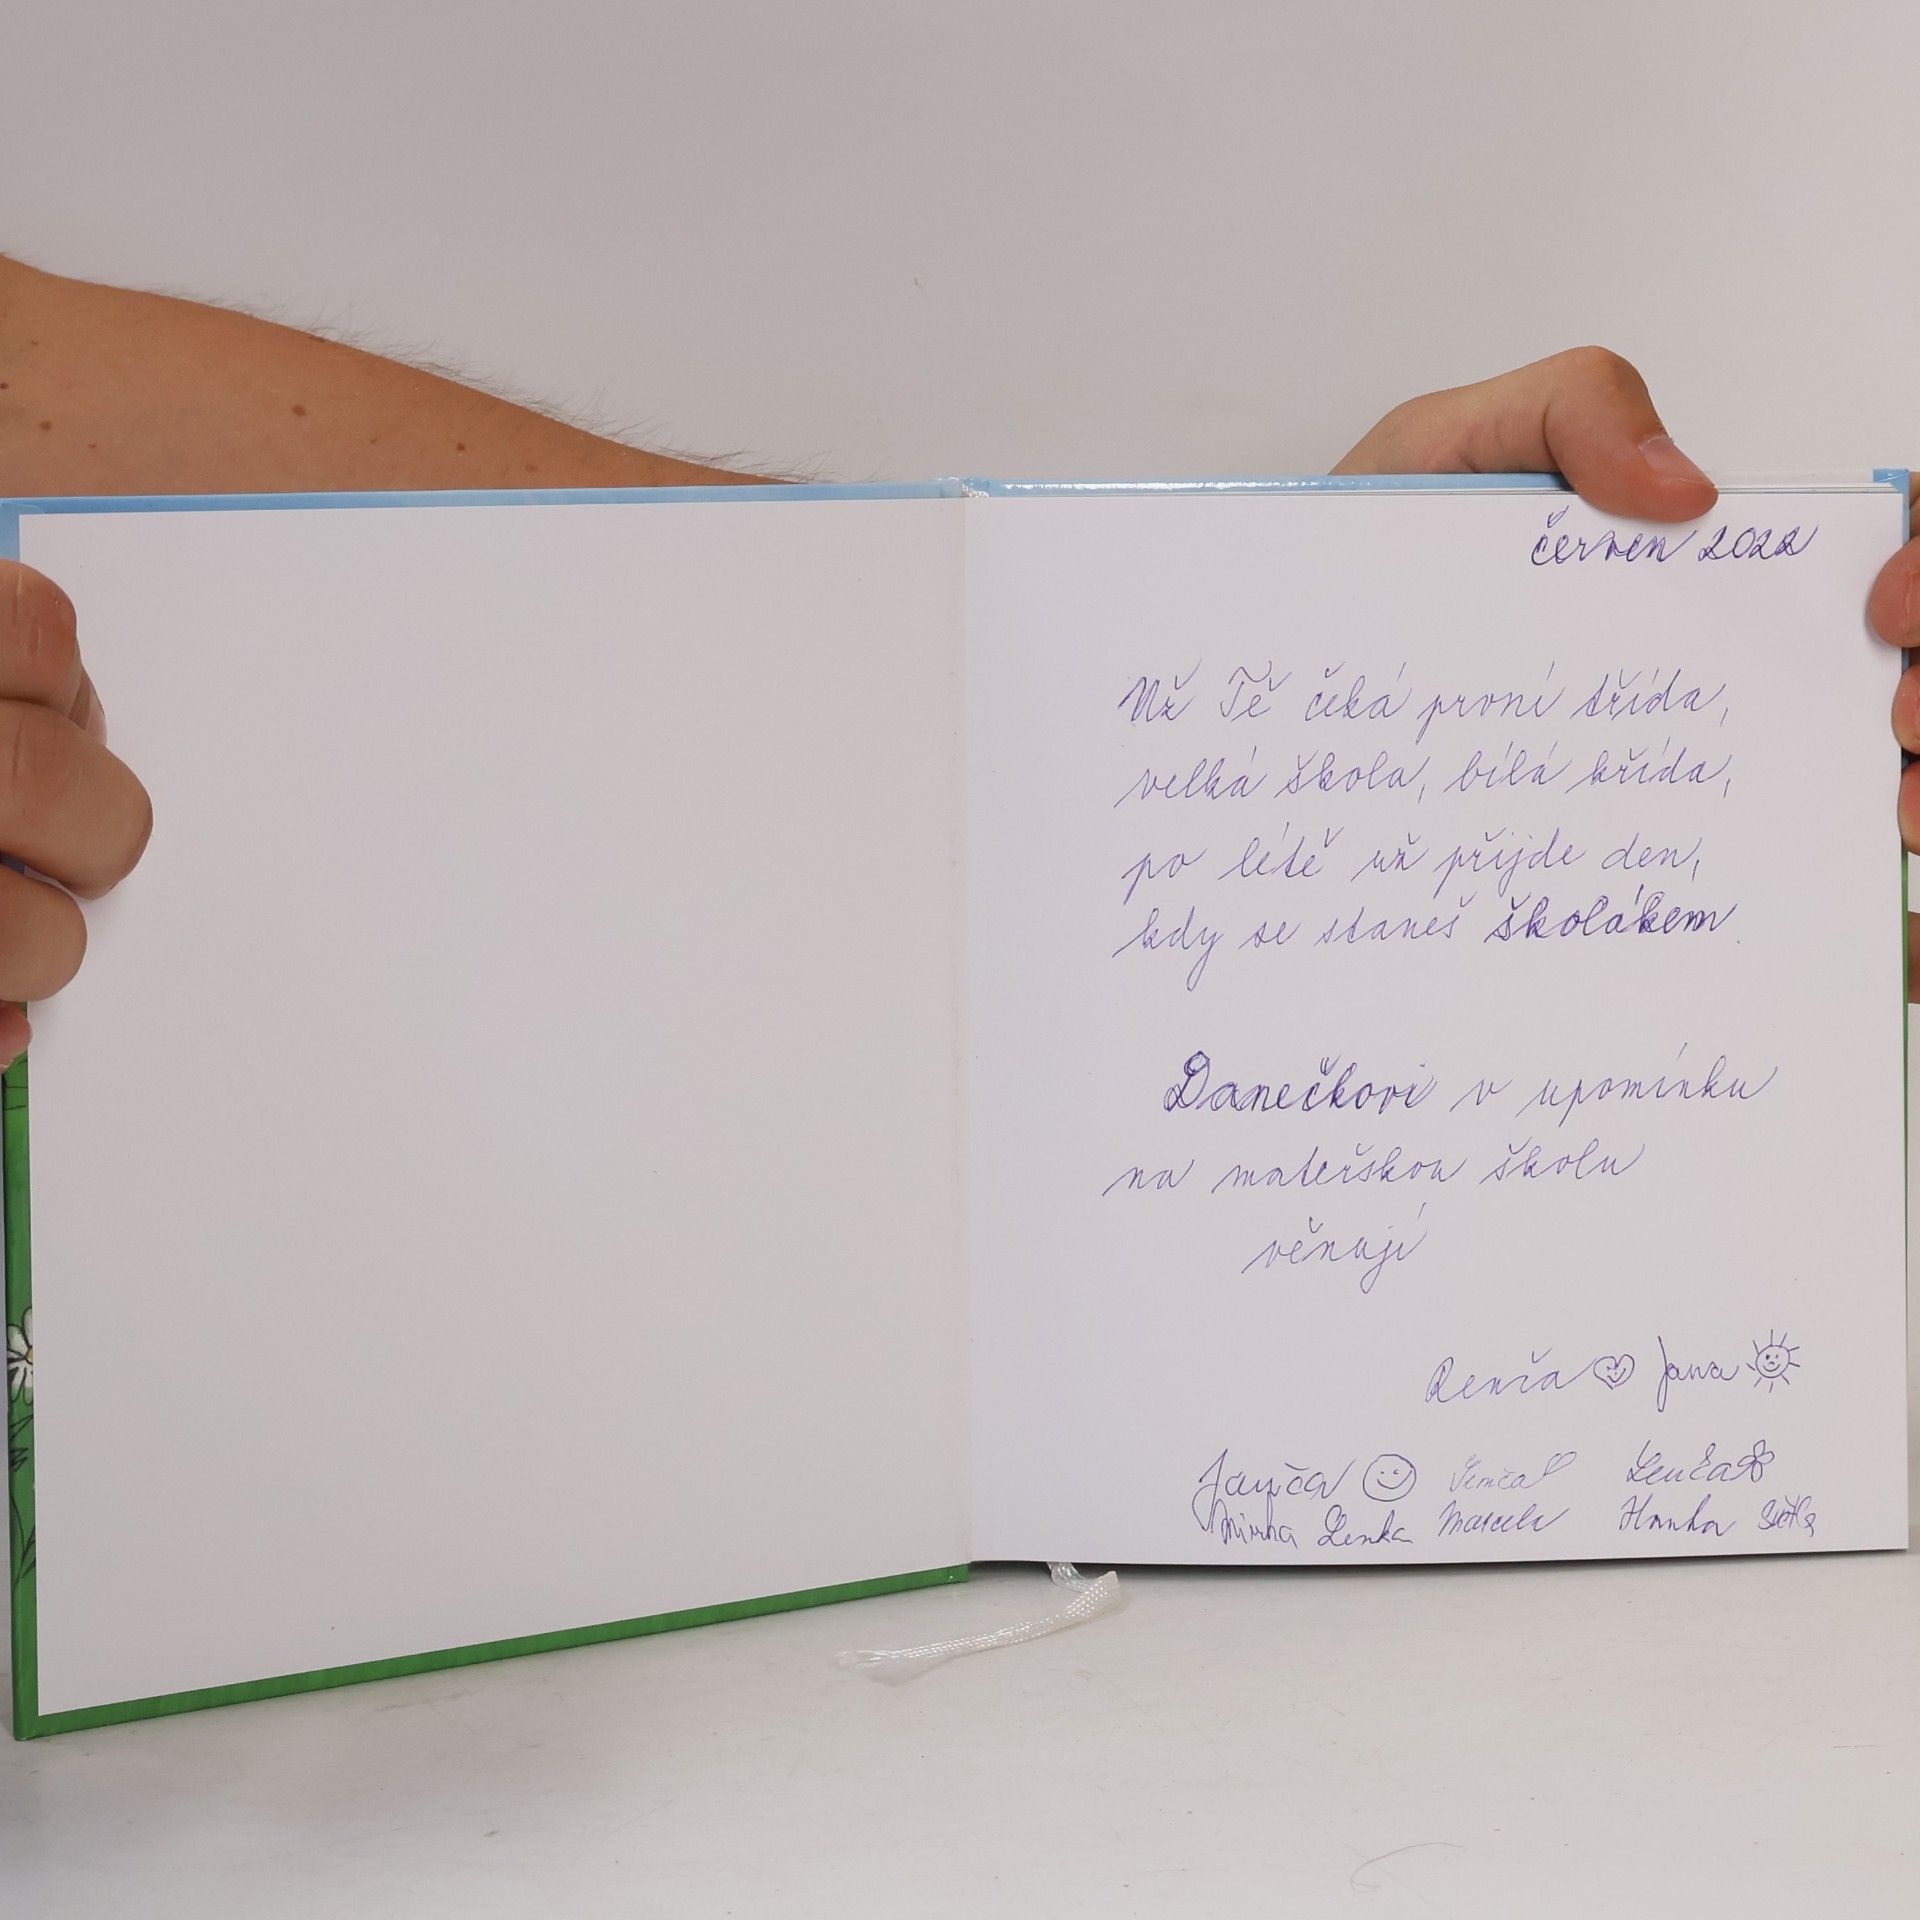 červen 2022
Už Tě čeká první třída,
velká škola, bílá křída,
po létě už přijde den,
kdy se staneš školákem.
Danečkovi v upomínku
na mateřskou školu
věnují
Renča Jana
Janča Lenča
Mirka Lenka Marcela Hanka